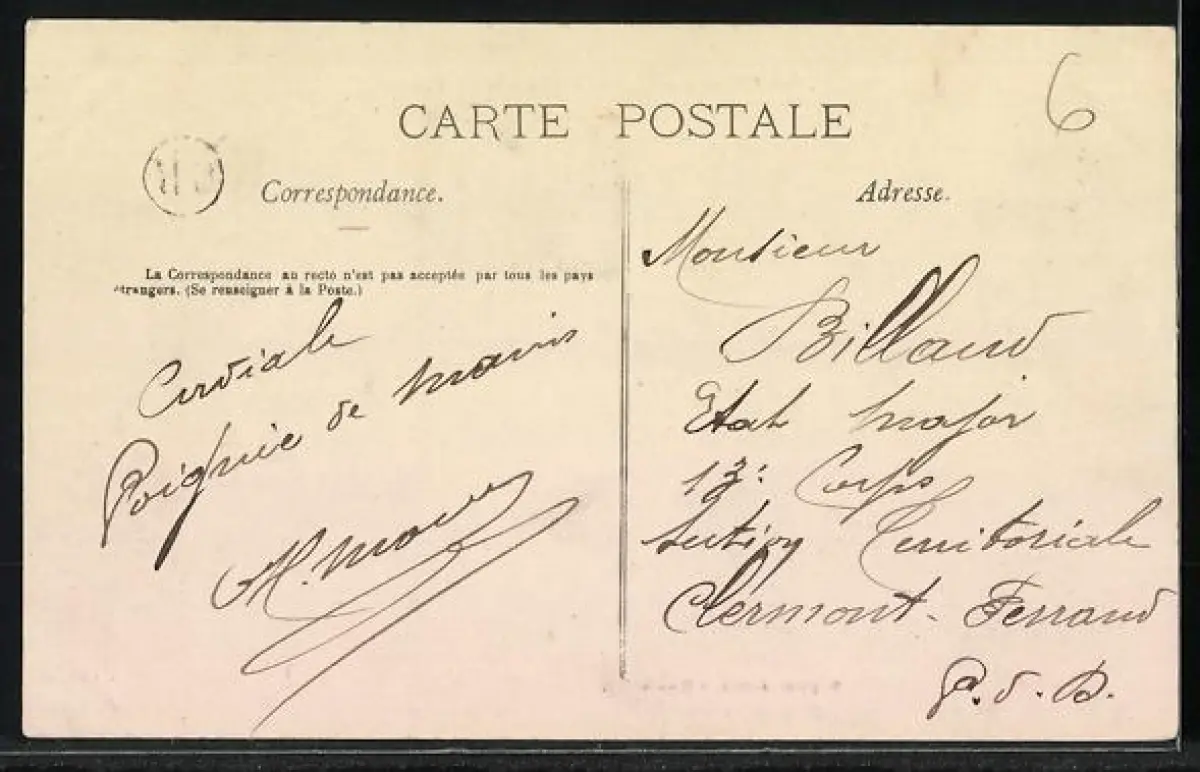 CARTE POSTALE
6
Correspondance.
Adresse.
La Correspondance au recto n'est pas acceptée par tous les pays
étrangers. (Se renseigner à la Poste.)
Cordiale
Poignée de mains
Monsieur
Billaud
Etat major
13e Corps
Section Territoriale
Clermont-Ferrand
P. d. D.